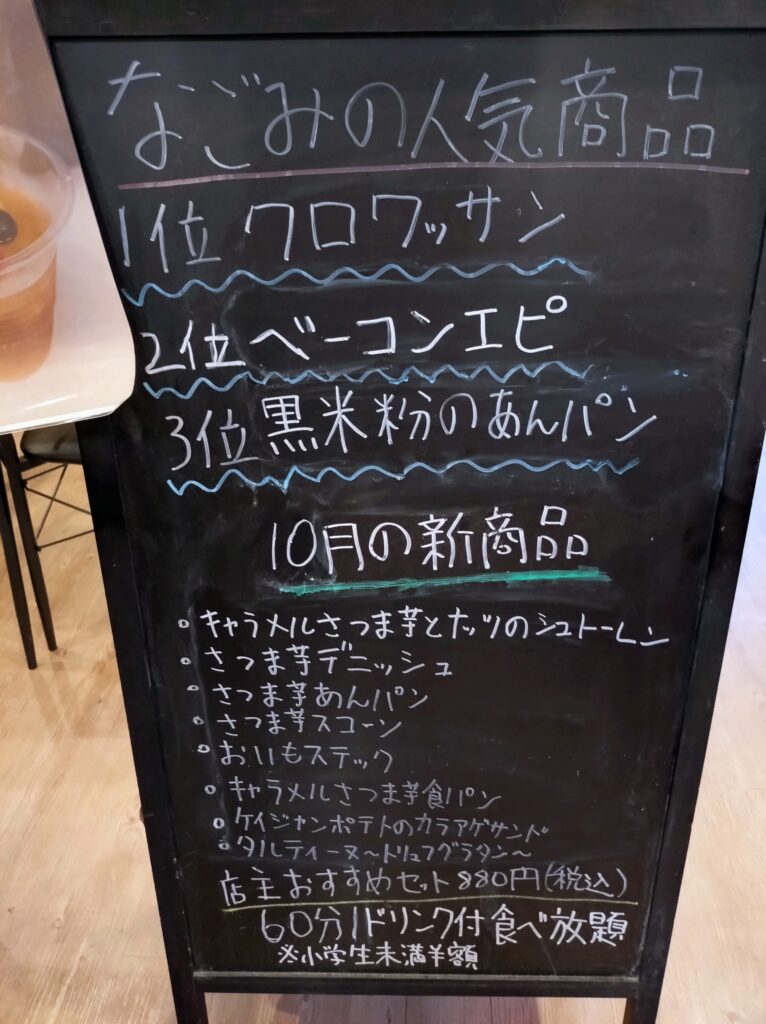 なごみの人気商品
1位 クロワッサン
2位 ベーコンエピ
3位 黒米粉のあんパン
10月の新商品
。キャラメルさつま芋とナッツのシュトーレン
。さつま芋デニッシュ
。さつま芋あんパン
。さつま芋スコーン
。おいもスティック
。キャラメルさつま芋食パン
。ケイジャンポテトのカラアゲサンド
。タルティーヌ〜トリュフグラタン〜
店主おすすめセット880円(税込)
60分1ドリンク付食べ放題
※小学生未満半額